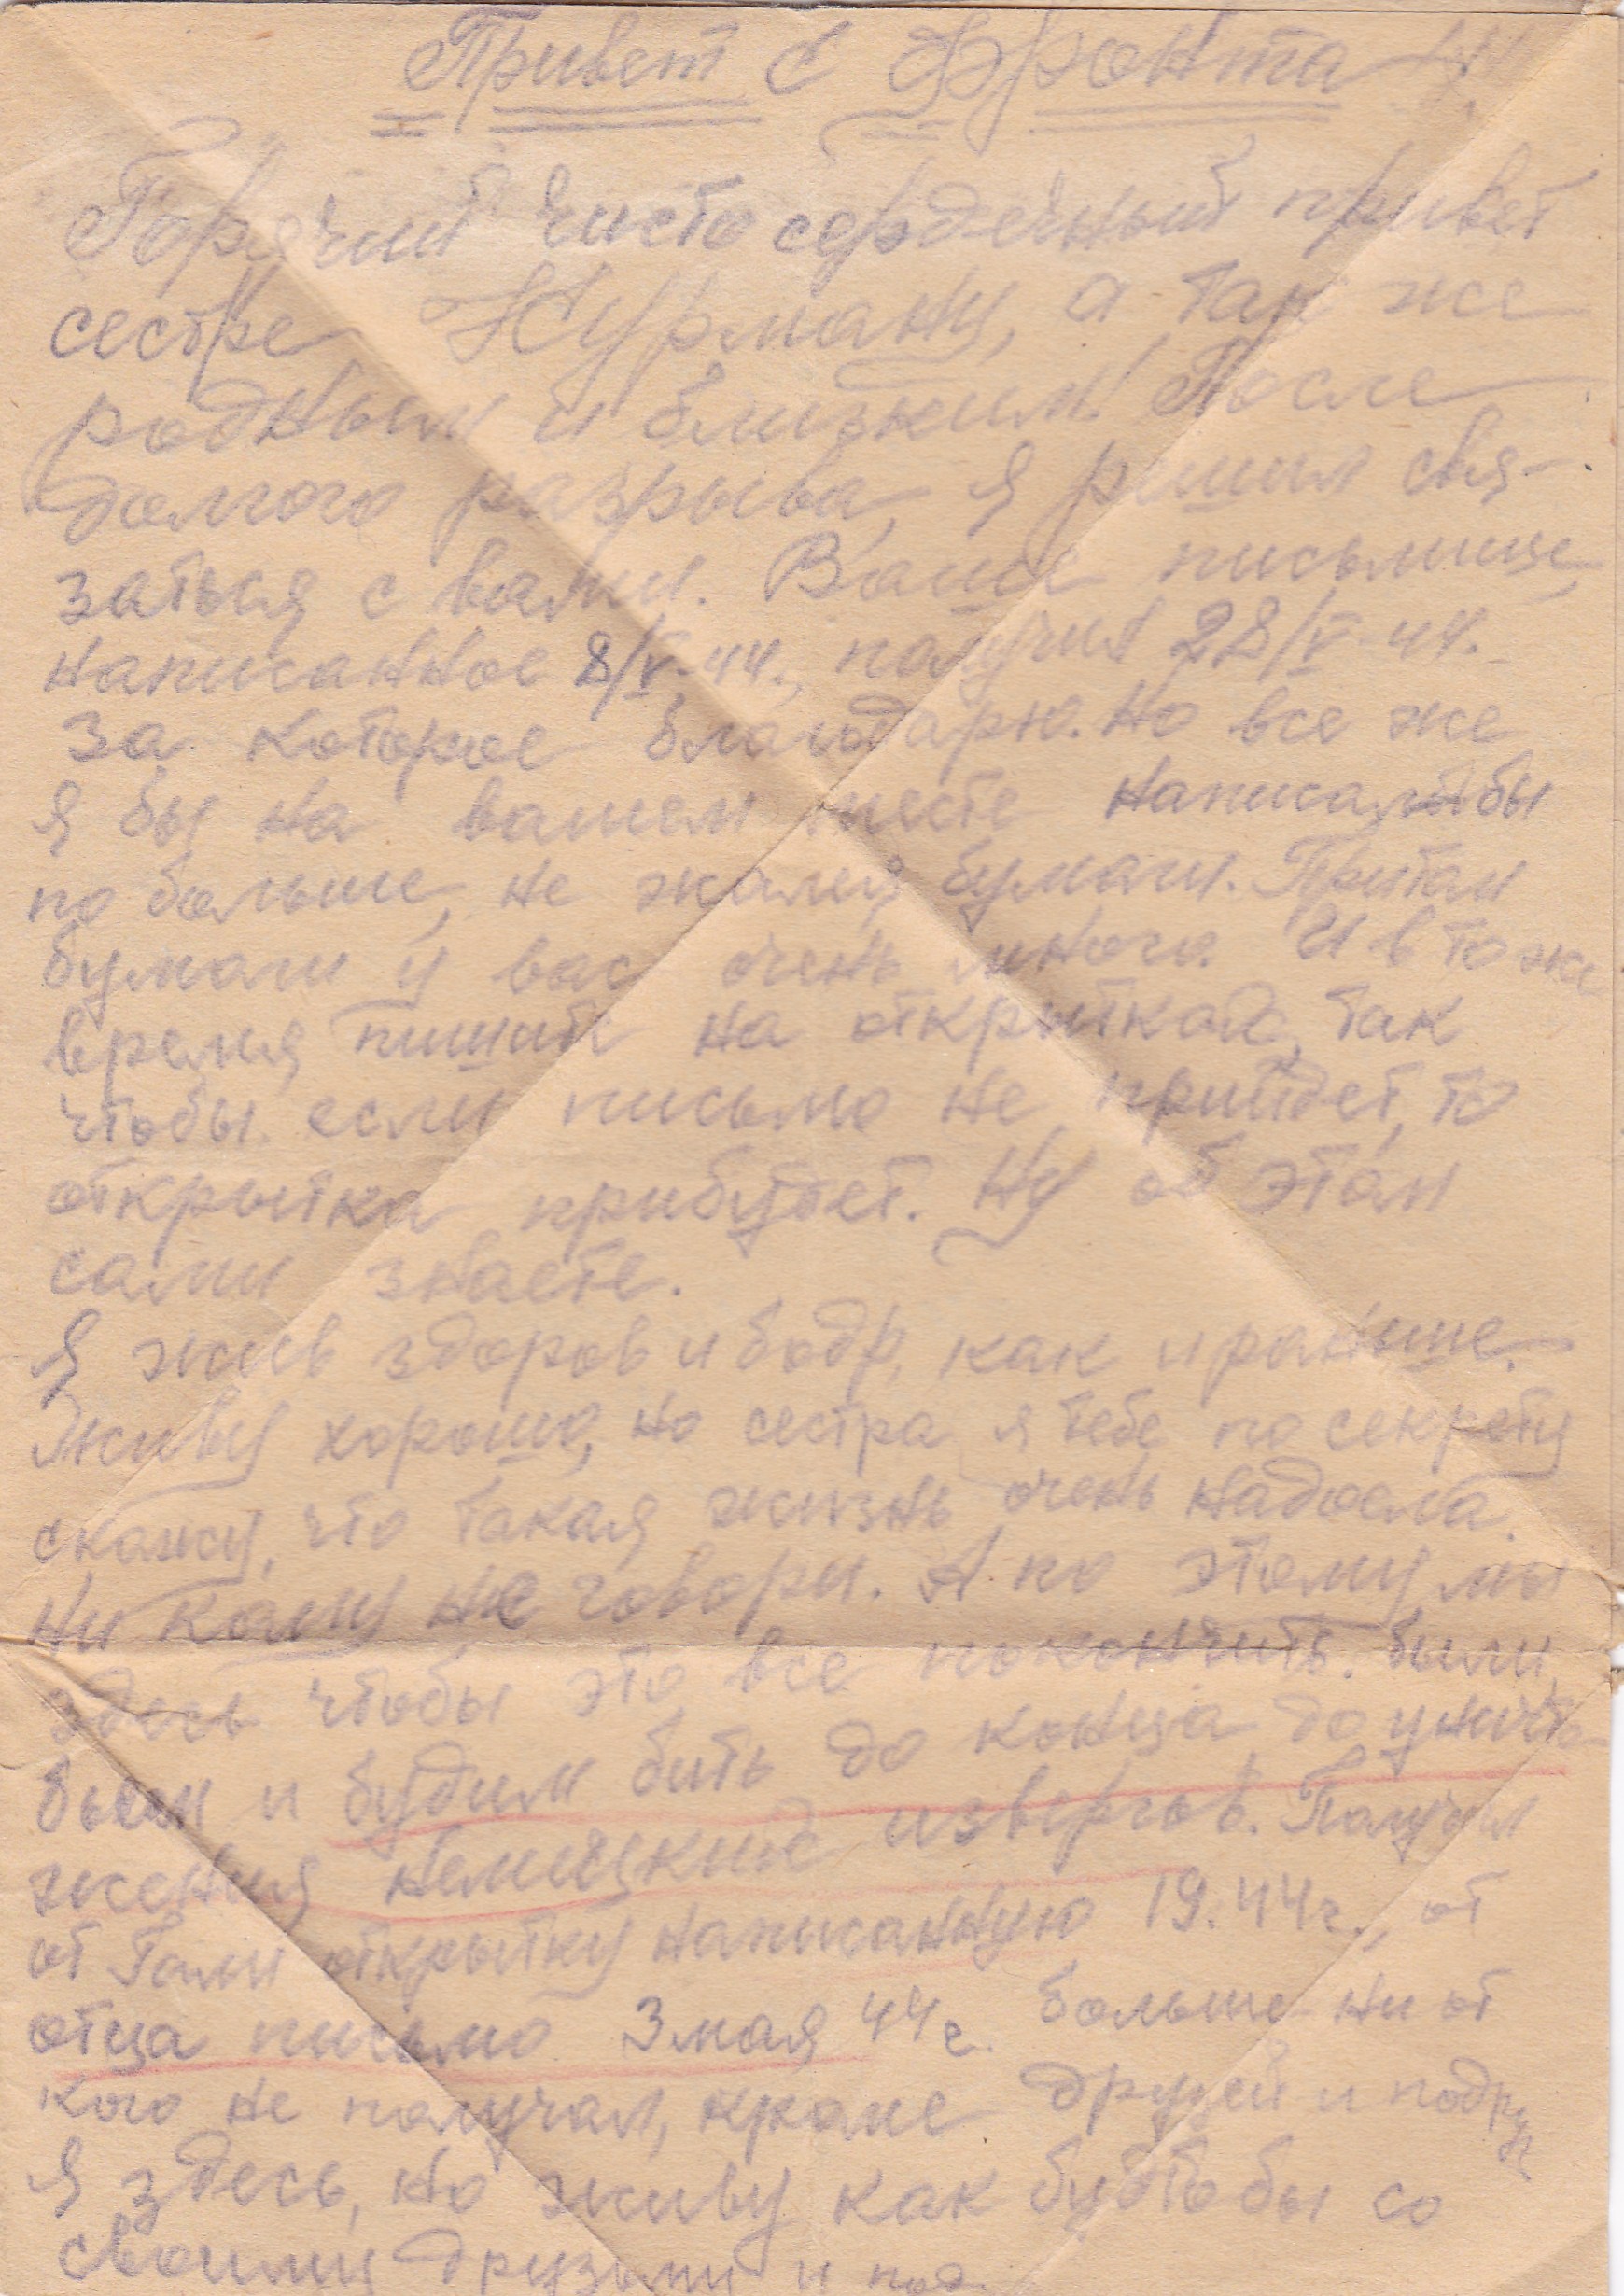 Привет с фронта!
Горячий чисто сердечный привет
сестре Нурману, а так же
родным и близким! После
долгого разрыва, я решил свя-
заться с вами. Ваше письмище,
написанное 8/V-44., получил 28/V-44.
за которое благодарю. Но все же
я бы на вашем месте написал бы
по больше, не жалея бумаги. Притом
бумаги у вас очень много. И в то же
время, пишите на открытках, так
чтобы если письмо не прийдет, то
открытка прибудет. Ну об этом
сами знаете.
Я жив здоров и бодр, как и раньше.
Живу хорошо, но сестра я тебе по секрету
скажу, что такая жизнь очень надоела.
Ни кому не говори. А по этому мы
здесь чтобы это все покончить. били,
бьем и будим бить до конца до уничто-
жения немецких извергов. Получил
от Гали открытку написанную 19.44г., от
отца письмо 3 мая 44г. больше ни от
кого не получал, кроме друзей и подруг
Я здесь, но живу как будто бы со
своими друзьями и под.